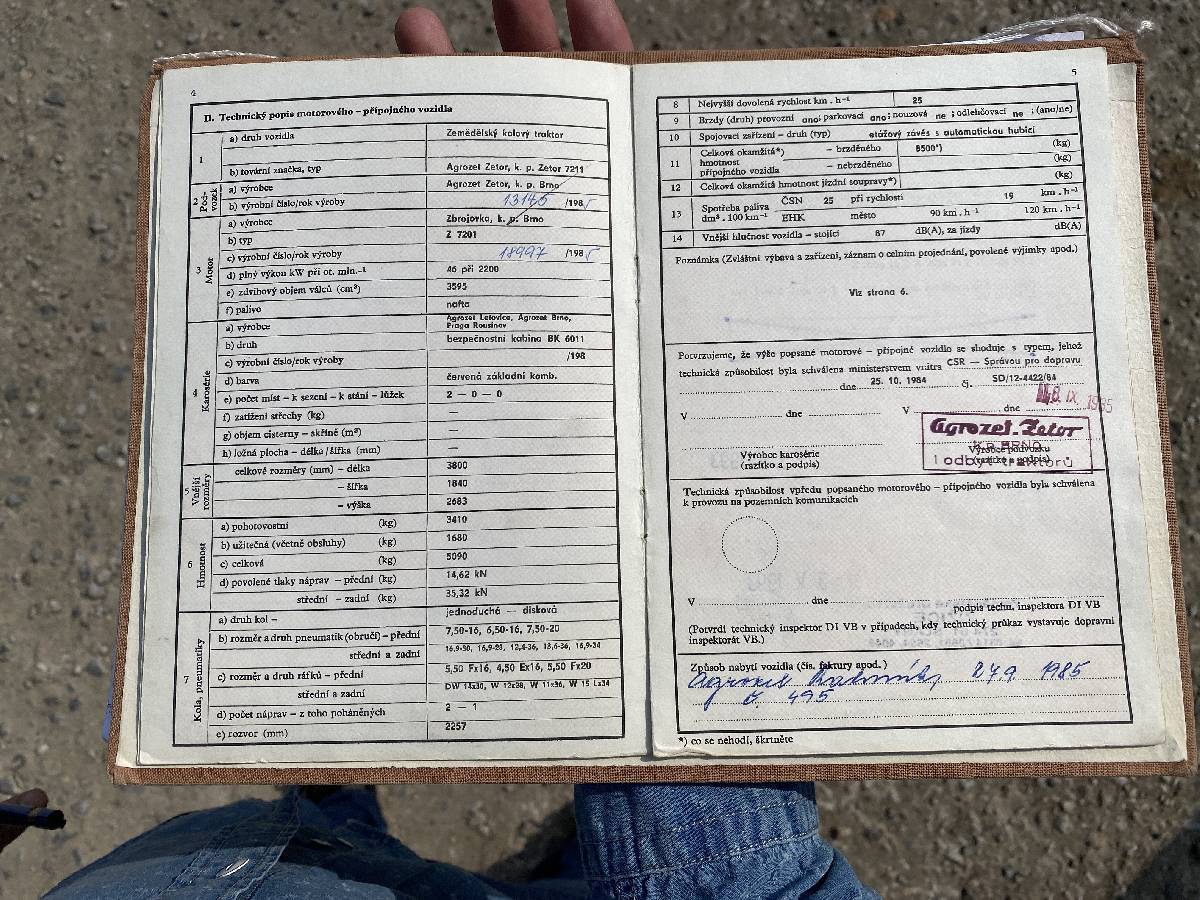 4
II. Technický popis motorového – přípojného vozidla
1 a) druh vozidla Zemědělský kolový traktor
b) tovární značka, typ Agrozet Zetor, k. p. Zetor 7211
2 Podvozek a) výrobce Agrozet Zetor, k. p. Brno
b) výrobní číslo/rok výroby /1985
3 Motor a) výrobce Zbrojovka, k. p. Brno
b) typ Z 7201
c) výrobní číslo/rok výroby 18997 /1985
d) plný výkon kW při ot. min.-¹ 46 při 2200
e) zdvihový objem válců (cm³) 3595
f) palivo nafta
4 Karosérie a) výrobce Agrozet Letovice, Agrozet Brno,
Praga Rousínov
b) druh bezpečnostní kabina BK 6011
c) výrobní číslo/rok výroby /198
d) barva červená základní komb.
e) počet míst – k sezení – k stání – lůžek 2 — 0 — 0
f) zatížení střechy (kg) —
g) objem cisterny – skříně (m³) —
h) ložná plocha – délka/šířka (mm) —
5 Vnější rozměry celkové rozměry (mm) – délka 3800
– šířka 1840
– výška 2683
6 Hmotnost a) pohotovostní (kg) 3410
b) užitečná (včetně obsluhy) (kg) 1680
c) celková (kg) 5090
d) povolené tlaky náprav – přední (kg) 14,62 kN
střední – zadní (kg) 35,32 kN
7 Kola, pneumatiky a) druh kol – jednoduchá — disková
b) rozměr a druh pneumatik (obručí) – přední 7,50-16, 6,50-16, 7,50-20
střední a zadní 16,9-30, 16,9-28, 12,4-36, 13,6-36, 16,9-34
c) rozměr a druh ráfků – přední 5,50 Fx16, 4,50 Ex16, 5,50 Fx20
střední a zadní DW 14x30, W 12x28, W 11x36, W 15 Lx34
d) počet náprav – z toho poháněných 2 — 1
e) rozvor (mm) 2257
5
8 Nejvyšší dovolená rychlost km . h-¹ 25
9 Brzdy (druh) provozní ano; parkovací ano; nouzová ne ; odlehčovací ne ; (ano/ne)
10 Spojovací zařízení – druh (typ) etážový závěs s automatickou hubicí
11 Celková okamžitá*) hmotnost přípojného vozidla – brzděného 8500*) (kg)
– nebrzděného (kg)
12 Celková okamžitá hmotnost jízdní soupravy*) (kg)
13 Spotřeba paliva dm³ . 100 km-¹ ČSN 25 při rychlosti 19 km . h-¹
EHK město 90 km . h-¹ 120 km . h-¹
14 Vnější hlučnost vozidla – stojící 87 dB(A), za jízdy dB(A)
Poznámka (Zvláštní výbava a zařízení, záznam o celním projednání, povolené výjimky apod.)
Viz strana 6.
Potvrzujeme, že výše popsané motorové – přípojné vozidlo se shoduje s typem, jehož
technická způsobilost byla schválena ministerstvem vnitra ČSR — Správou pro dopravu
dne 25. 10. 1984 čj. SD/12-4422/84
V dne V dne IX. 1985
Agrozet-Zetor
K.P. BRNO
1 odbyt traktorů
Výrobce karosérie
(razítko a podpis)
Výrobce podvozku
(razítko a podpis)
Technická způsobilost vpředu popsaného motorového – přípojného vozidla byla schválena
k provozu na pozemních komunikacích
V dne
podpis techn. inspektora DI VB
(Potvrdí technický inspektor DI VB v případech, kdy technický průkaz vystavuje dopravní
inspektorát VB.)
Způsob nabytí vozidla (čís. faktury apod.)
1985
č. 495
*) co se nehodí, škrtněte